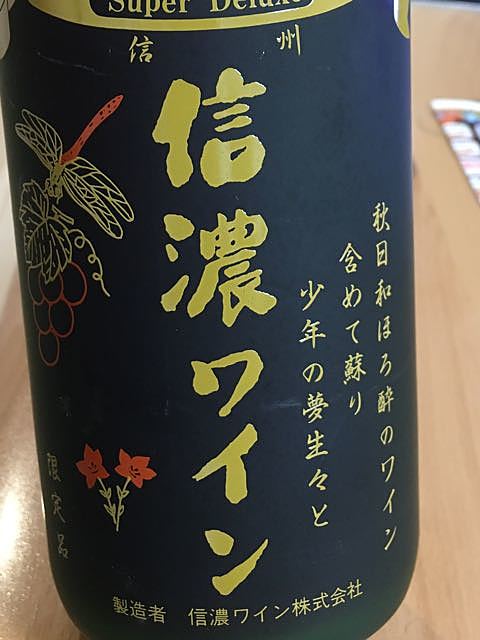 Super Deluxe
信州
信濃ワイン
秋日和ほろ酔のワイン
含めて蘇り
少年の夢生々と
限定品
製造者 信濃ワイン株式会社